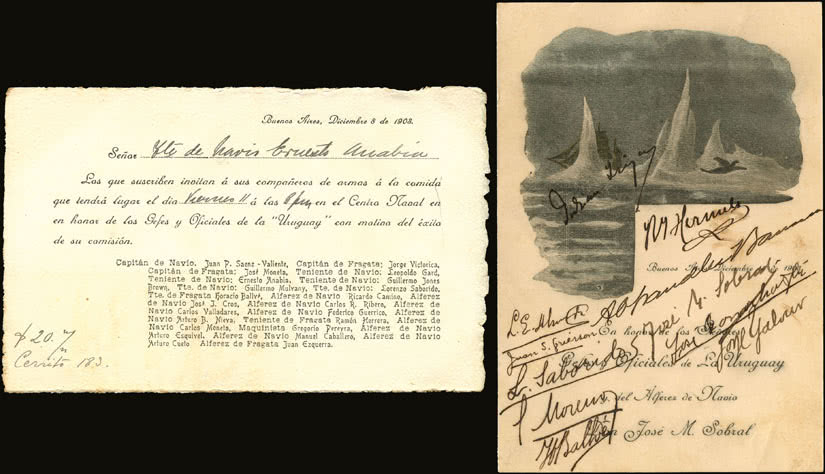 Buenos Aires, Diciembre 8 de 1903.
Señor Tte de Navio Ernesto Anabia
Los que suscriben invitan á sus compañeros de armas á la comida
que tendrá lugar el dia Viernes 11 á las 8 pm en el Centro Naval en
en honor de los Gefes y Oficiales de la "Uruguay" con motivo del éxito
de su comisión.
Capitán de Navio. Juan P. Saenz-Valiente, Capitán de Fragata: Jorge Victorica,
Capitán de Fragata: José Moneta, Teniente de Navio: Leopoldo Gard,
Teniente de Navio: Ernesto Anabia, Teniente de Navio: Guillermo Jones
Brown, Tte. de Navio: Guillermo Mulvany, Tte. de Navio: Lorenzo Saborido,
Tte. de Fragata Horacio Ballvé, Alferez de Navio: Ricardo Camino, Alferez
de Navio José J. Cros, Alferez de Navio Carlos R. Ribero, Alferez de
Navio Carlos Valladares, Alferez de Navio Federico Guerrico, Alferez de
Navio Arturo B. Nieva, Teniente de Fragata Ramón Herrera, Alferez de
Navio Carlos Moneta, Maquinista Gregorio Pereyra, Alferez de Navio
Arturo Esquivel, Alferez de Navio Manuel Caballero, Alferez de Navio
Arturo Cueto Alferez de Fragata Juan Ezquerra.
$ 20. m/n
Cerrito 183.
Julian Irizar
R. Hermelo
Buenos Diciembre
José M. Sobral
En honor de los Señores
Oficiales de La Uruguay
L. Saborido
y del Alferez de Navio
F Moreno
H Ballvé
José M. Sobral